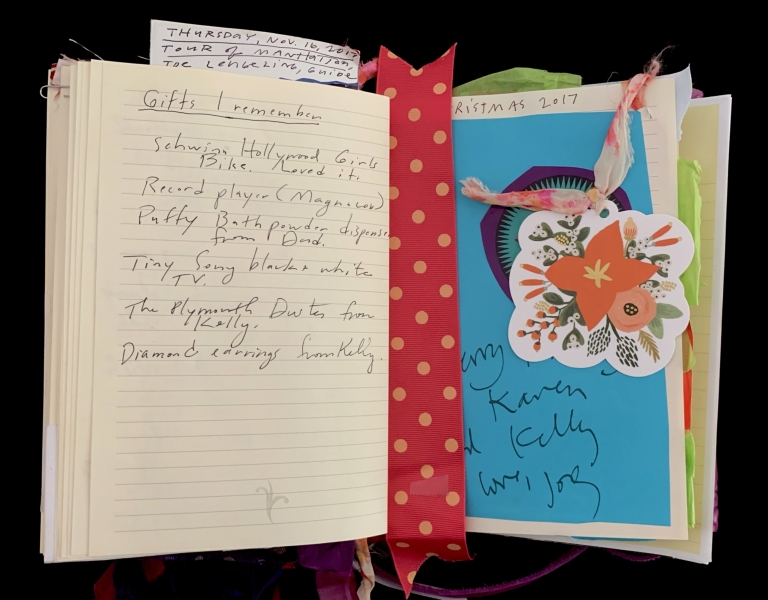 THURSDAY, NOV. 16, 2017
TOUR OF MANHATTAN,
JOE LENGELING, GUIDE
Gifts I remember
Schwinn Hollywood Girls
Bike. Loved it.
Record player (Magnavox)
Puffy Bath powder dispenser
from Dad.
Tiny Sony black & white
TV.
The Plymouth Duster from
Kelly.
Diamond earrings from Kelly.
RISTMAS 2017
erry
Karen
Kelly
Love,